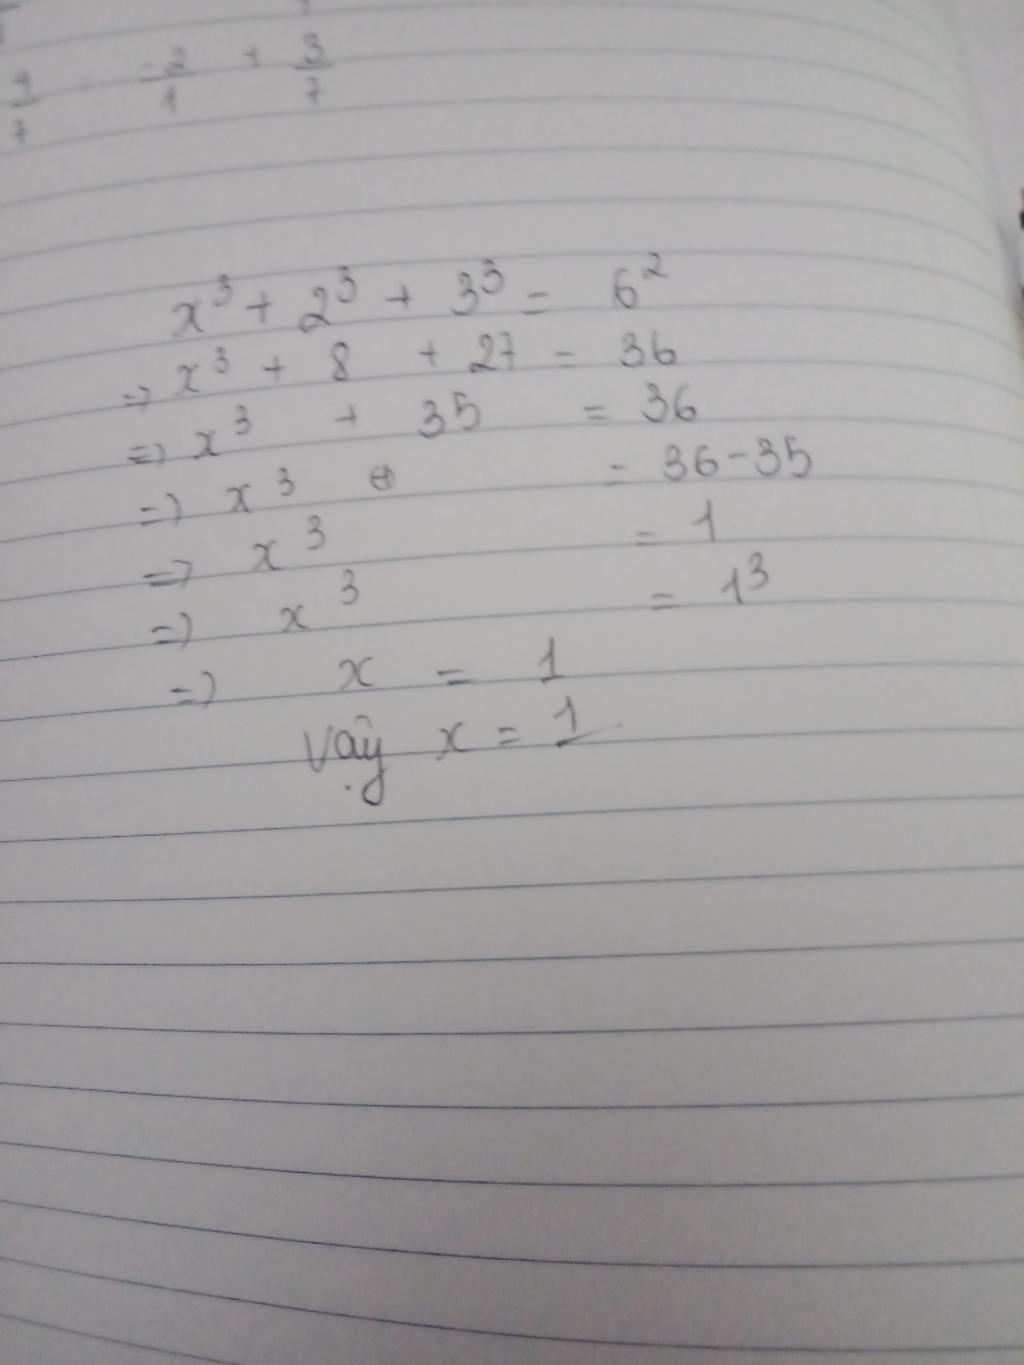 -2/1 + 3/7
x³ + 2³ + 3³ = 6²
=> x³ + 8 + 27 = 36
=> x³ + 35 = 36
=> x³ = 36-35
=> x³ = 1
=> x³ = 1³
=> x = 1
Vậy x = 1